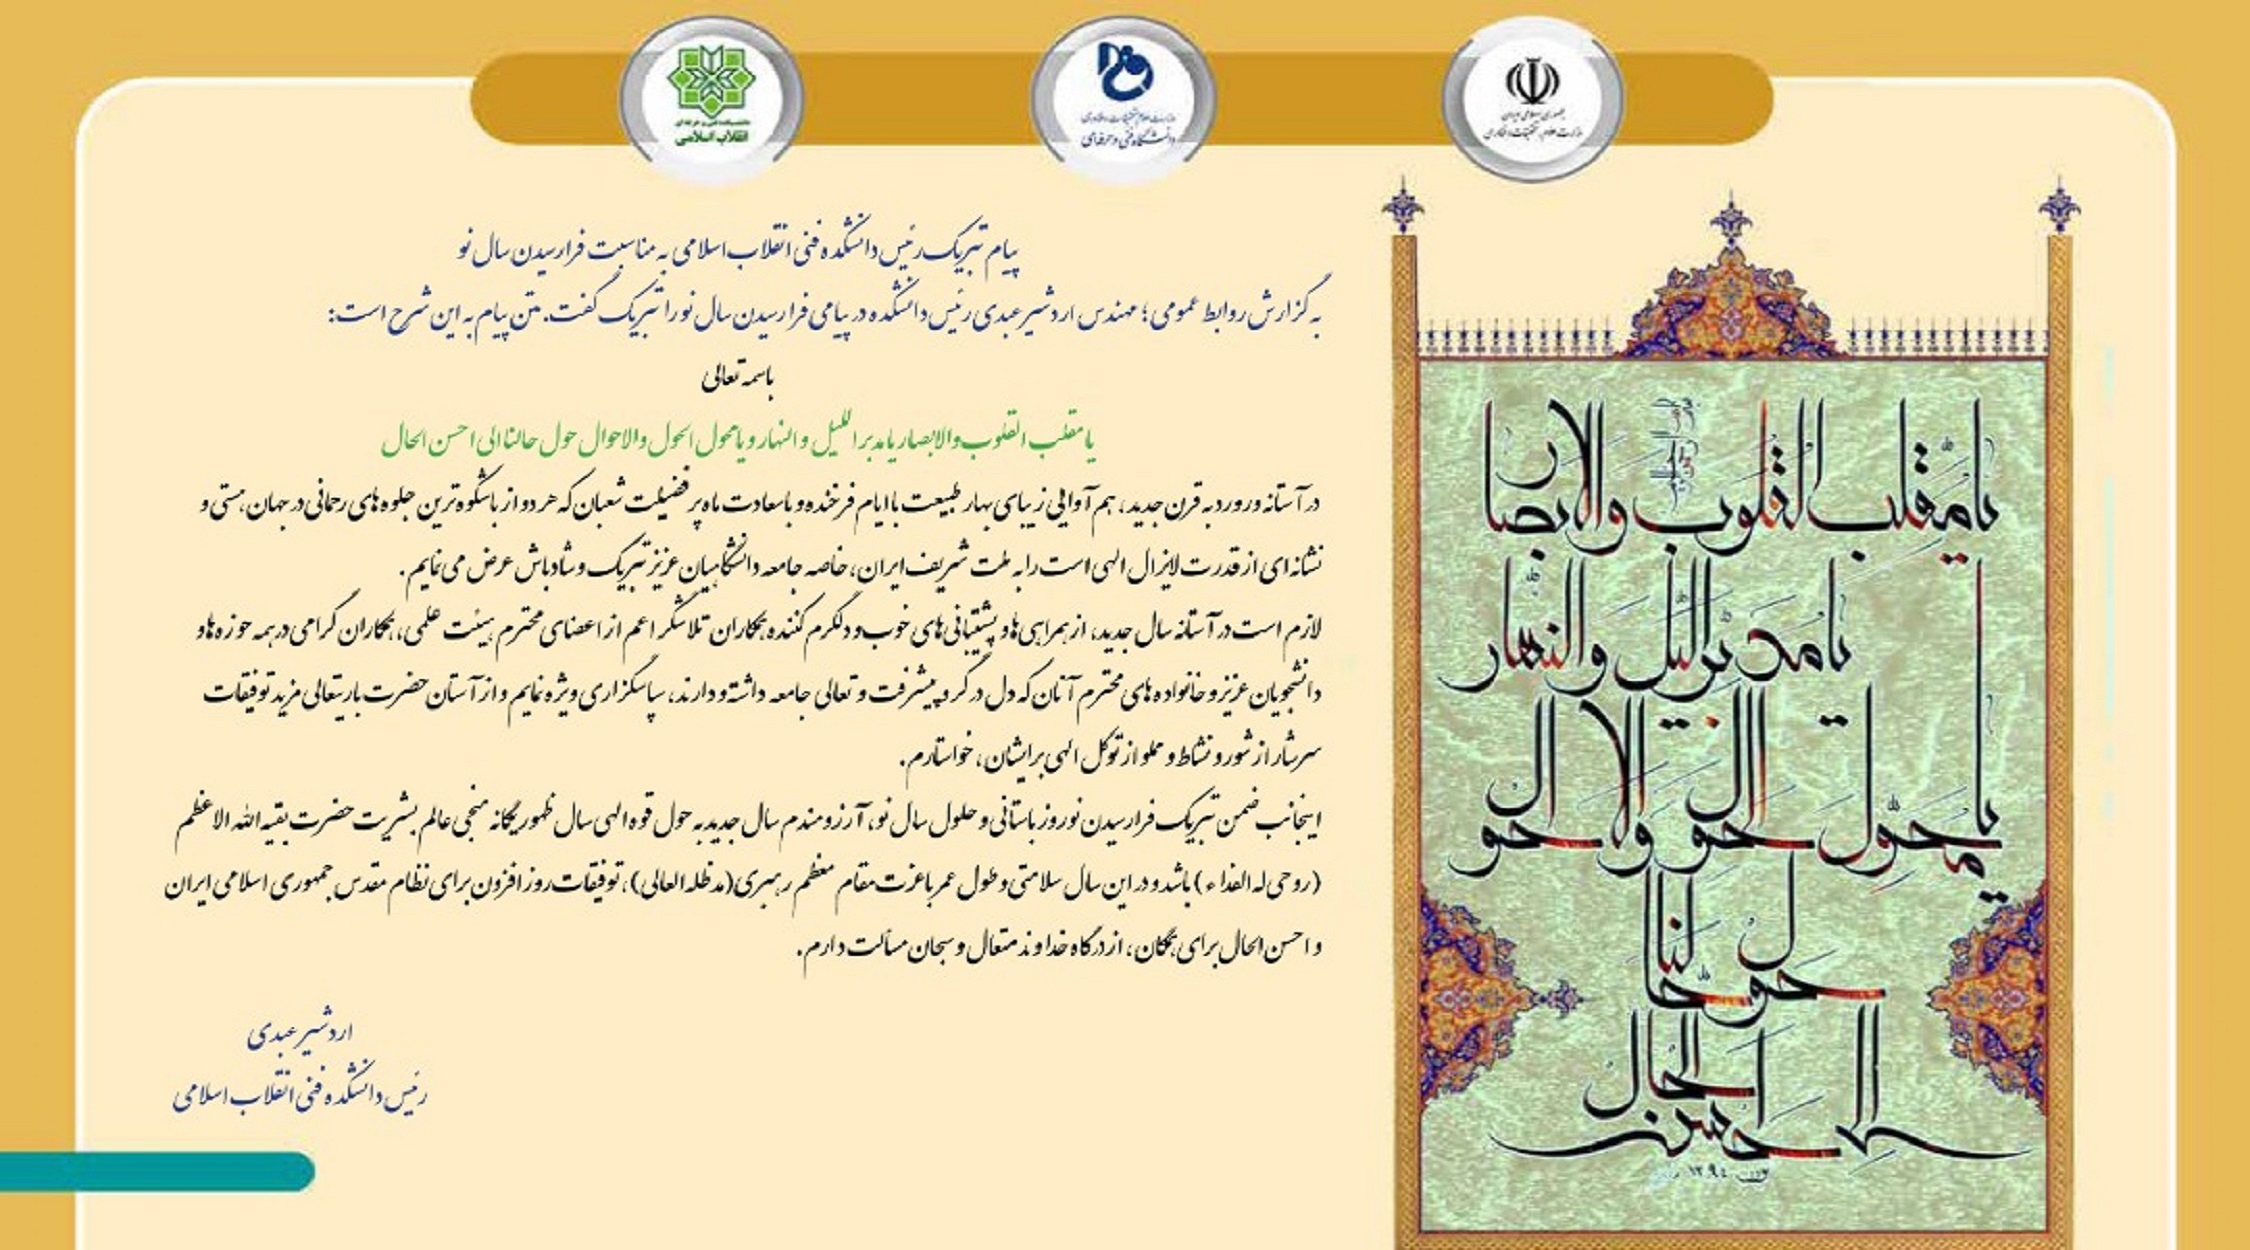 جمهوری اسلامی ایران
وزارت علوم، تحقیقات و فناوری
وزارت علوم، تحقیقات و فناوری
دانشگاه فنی و حرفه‌ای
دانشکده فنی و حرفه ای
انقلاب اسلامی
پیام تبریک رئیس دانشکده فنی انقلاب اسلامی به مناسبت فرارسیدن سال نو
به گزارش روابط عمومی؛ مهندس اردشیر عبدی رئیس دانشکده در پیامی فرارسیدن سال نو را تبریک گفت. متن پیام به این شرح است:
باسمه تعالی
یا مقلب القلوب والابصار یا مدبر اللیل و النهار و یا محول الحول والاحوال حول حالنا الی احسن الحال
در آستانه ورود به قرن جدید، هم آوایی زیبای بهار طبیعت با ایام فرخنده و باسعادت ماه پر فضیلت شعبان که هر دو از باشکوه ترین جلوه های رحمانی در جهان هستی و
نشانه ای از قدرت لایزال الهی است را به ملت شریف ایران، خاصه جامعه دانشگاهیان عزیز تبریک و شادباش عرض می نمایم.
لازم است در آستانه سال جدید، از همراهی ها و پشتیبانی های خوب و دلگرم کننده همکاران تلاشگر اعم از اعضای محترم هیئت علمی، همکاران گرامی در همه حوزه ها و
دانشجویان عزیز و خانواده های محترم آنان که دل در گرو پیشرفت و تعالی جامعه داشته و دارند، سپاسگزاری ویژه نمایم و از آستان حضرت باریتعالی مزید توفیقات
سرشار از شور و نشاط و مملو از توکل الهی برایشان، خواستارم.
اینجانب ضمن تبریک فرارسیدن نوروز باستانی و حلول سال نو، آرزومندم سال جدید به حول قوه الهی سال ظهور یگانه منجی عالم بشریت حضرت بقیه الله الاعظم
(روحی له الفداء) باشد و در این سال سلامتی و طول عمر با عزت مقام معظم رهبری(مدظله العالی)، توفیقات روز افزون برای نظام مقدس جمهوری اسلامی ایران
و احسن الحال برای همگان، از درگاه خداوند متعال و سبحان مسألت دارم.
اردشیر عبدی
رئیس دانشکده فنی انقلاب اسلامی
یا مقلب القلوب والابصار
یا مدبر اللیل والنهار
یا محوّل الحول والاحوال
حول حالنا
الی احسن الحال
۱۳۹۴